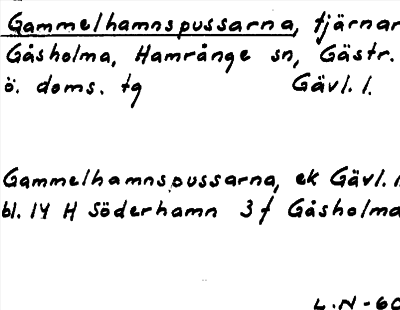 Gammelhamnspussarna, tjärnar
Gåsholma, Hamrånge sn, Gästr.
ö. doms. tg Gävl. l.
Gammelhamnspussarna, ek Gävl. l.
bl. 14 H Söderhamn 3 f Gåsholma
L.N-60